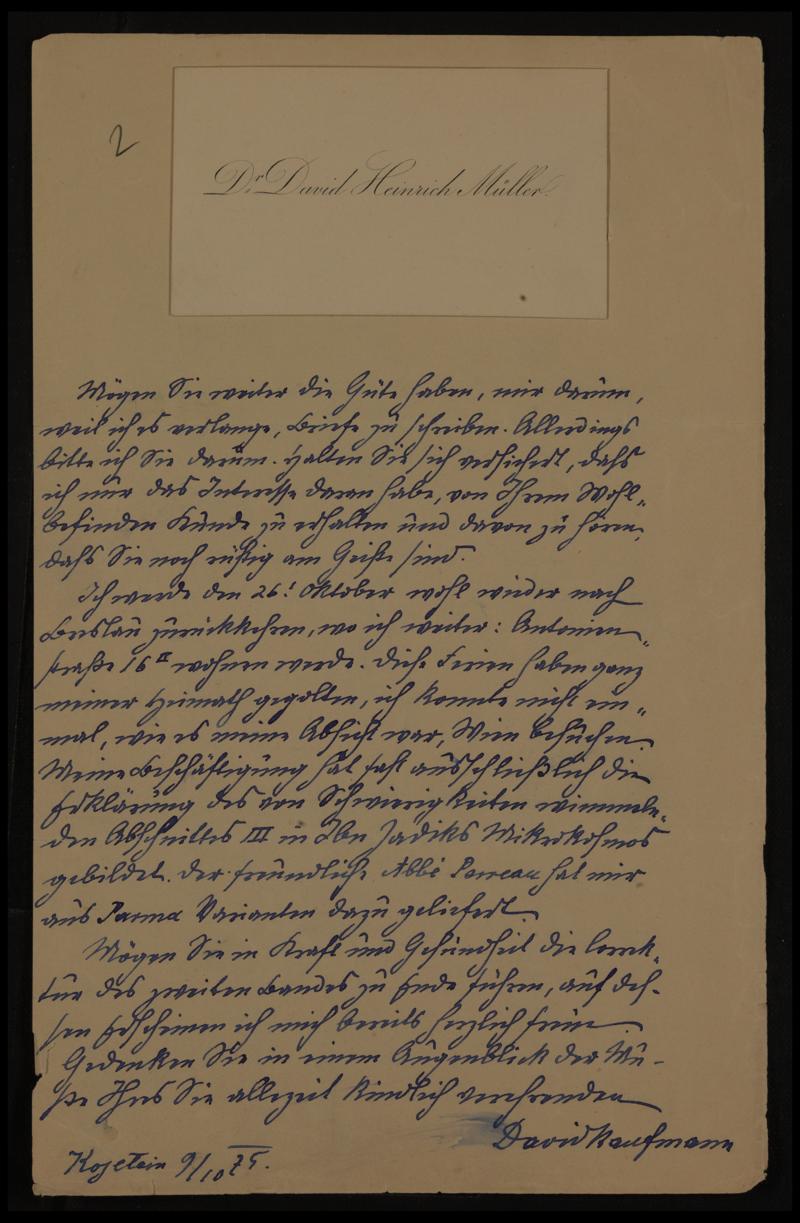 2
Dr. David Heinrich Müller.
Mögen Sie weiter die Güte haben, mir darum,
weil ich es verlange, Briefe zu schreiben. Allerdings
bitte ich Sie darum. Halten Sie sich versichert, dafs
ich nur das Interesse daran habe, von Ihrem Wohl„
befinden Kunde zu erhalten und davon zu hören,
dafs Sie noch rüstig am Geiste sind.
Ich werde den 26! Oktober wohl wieder nach
Breslau zurückkehren, wo ich weiter: Antonien„
straße 16 II wohnen werde. Diese Ferien haben ganz
meiner Heimath gegolten, ich konnte nicht ein„
mal, wie es meine Absicht war, Wien besuchen.
Meine Beschäftigung hat fast ausschließlich die
Erklärung des von Schwierigkeiten wimmeln„
den Abschnittes III in Ibn Zadiks Mikrokosmos
gebildet. Der freundliche Abbé Perreau hat mir
aus Parma Varianten dazu geliefert.
Mögen Sie in Kraft und Gesundheit die Correk„
tur des zweiten Bandes zu Ende führen, auf des-
sen Erscheinen ich mich bereits herzlich freue.
Gedenken Sie in einem Augenblick der Mu-
ße Ihres Sie allezeit kindlich verehrenden
David Kaufmann
Kojetein 9/10 75.